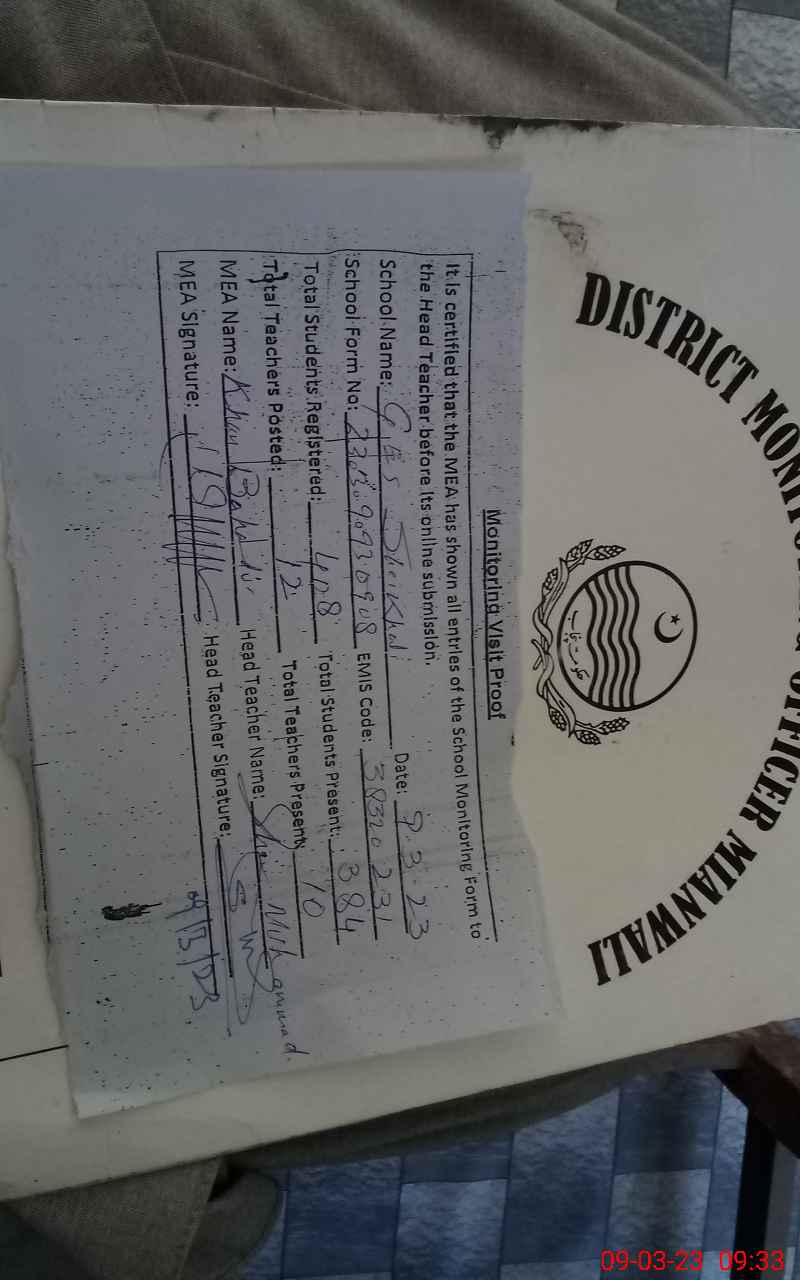 DISTRICT MONITORING OFFICER MIANWALI
حکومت پنجاب
Monitoring Visit Proof
It is certified that the MEA has shown all entries of the School Monitoring Form to
the Head Teacher before its online submission.
School Name: GES Date: 9.3.23
School Form No: EMIS Code: 38320231
Total Students Registered: 408 Total Students Present: 384
Total Teachers Posted: 12 Total Teachers Present: 10
MEA Name: Khan Bahadur Head Teacher Name: Sher Muhammad.
MEA Signature: Head Teacher Signature:
09/3/23
09-03-23 09:33